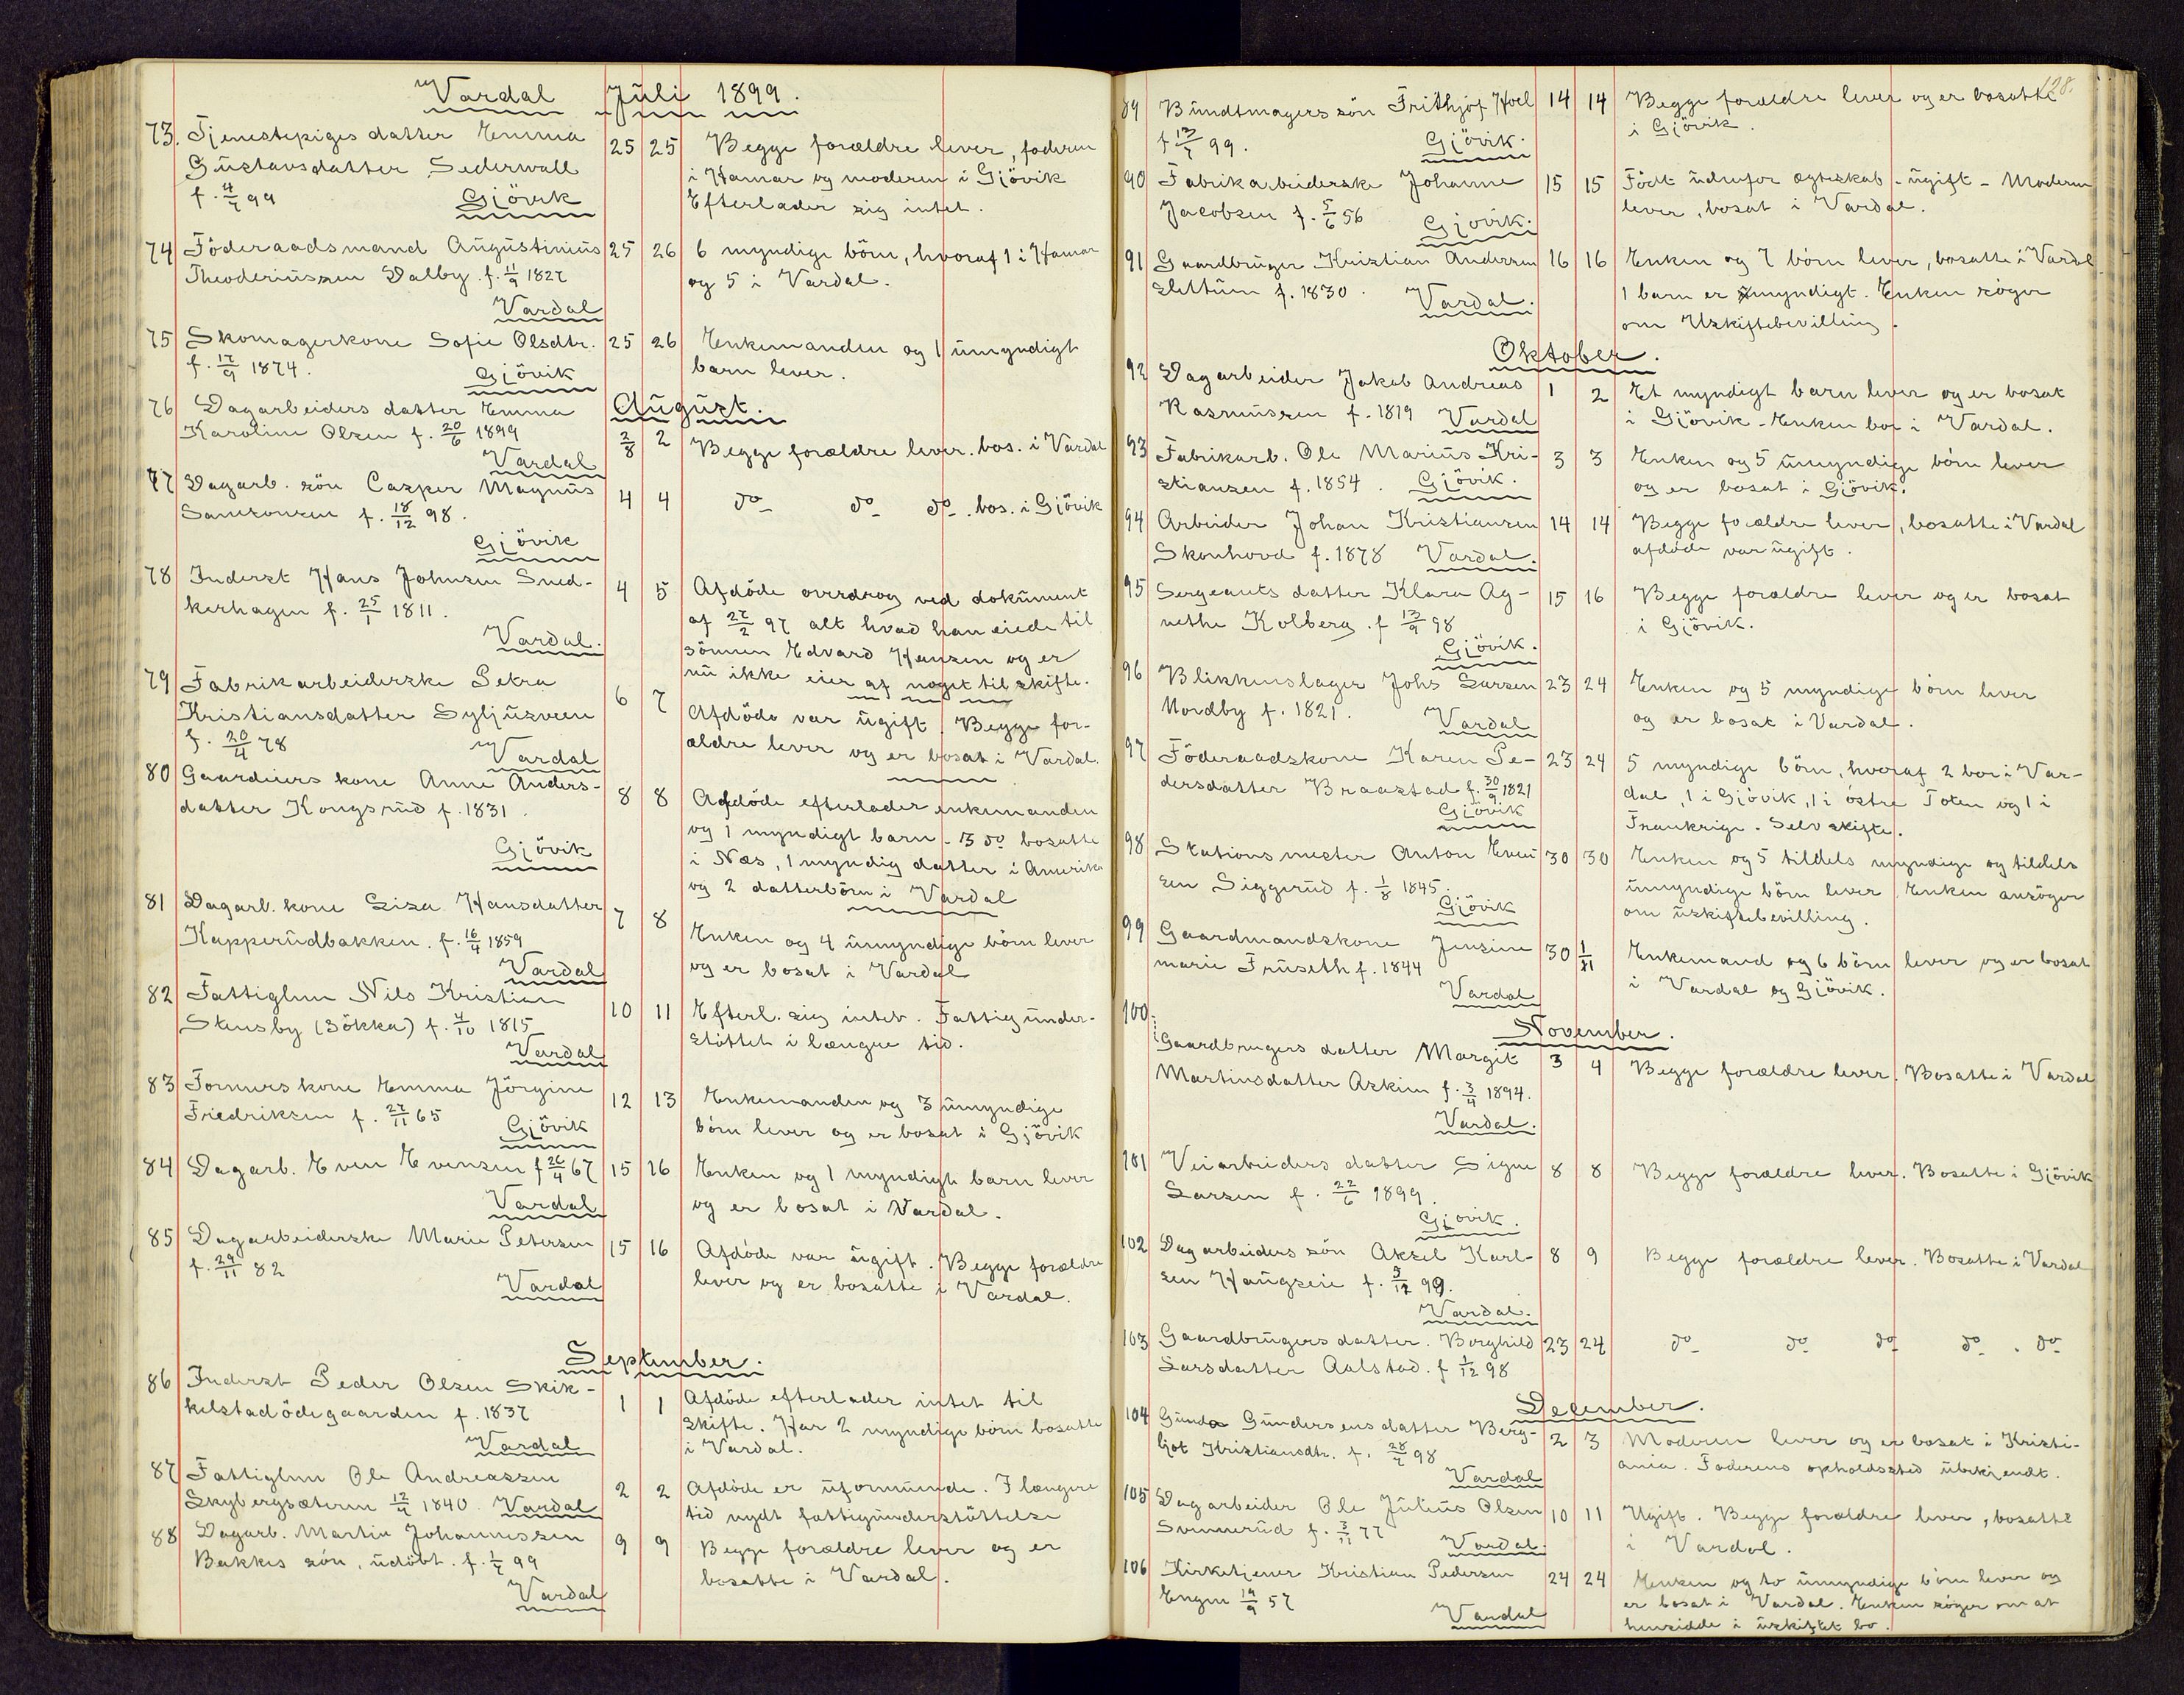 Vardal Juli 1899.
73. Tjenestepiges datter Emma
Gustavsdatter Sederwall
f. 4/7 99 Gjövik
25 25 Begge forældre lever, faderen
i Hamar og moderen i Gjövik
Efterlader sig intet.
74 Föderaadsmand Augustinius
Theoderiussen Dalby. f. 11/9 1827
Vardal
25 26 6 myndige börn, hvoraf 1 i Hamar
og 5 i Vardal.
75 Skomagerkone Sofie Olsdtr.
f. 17/9 1874. Gjövik
25 26 Enkemanden og 1 umyndigt
barn lever.
August.
76 Dagarbeiders datter Emma
Karoline Olsen f. 20/6 1899
Vardal
2/8 2 Begge forældre lever. bos. i Vardal
77 Dagarb. sön Casper Magnus
Samsonsen f. 18/12 98.
Gjövik
4 4 do do do. bos. i Gjövik
78 Inderst Hans Johnsen Sned-
kerhagen f. 25/1 1811.
Vardal.
4 5 Afdöde overdrog ved dokument
af 27/2 97 alt hvad han eiede til
sönnen Edvard Hansen og er
nu ikke eier af noget til skifte.
79 Fabrikarbeiderske Petra
Kristiansdatter Syljusveen
f. 20/4 78 Vardal
6 7 Afdöde var ugift. Begge for-
ældre lever og er bosat i Vardal.
80 Gaardeiers kone Anne Anders-
datter Kongsrud f. 1831.
Gjövik
8 8 Afdöde efterlader enkemanden
og 1 myndigt barn - 3 do bosatte
i Næs, 1 myndig datter i Amerika
og 2 datterbörn i Vardal
81 Dagarb. kone Lisa Hansdatter
Kapperudbakken. f. 16/4 1859
Vardal
7 8 Enken og 4 umyndige börn lever
og er bosat i Vardal
82 Fattiglem Nils Kristian
Stensby (Sökka) f. 4/10 1815
Vardal
10 11 Efterl. sig intet. Fattigunder-
stöttet i længre tid.
83 Formers kone Emma Jörgine
Fredriksen f. 27/11 65
Gjövik
12 13 Enkemanden og 3 umyndige
börn lever og er bosat i Gjövik
84 Dagarb. Even Evensen f 26/4 67
Vardal
15 16 Enken og 1 myndigt barn lever
og er bosat i Vardal.
85 Dagarbeiderske Marie Petersen
f. 29/11 82
Vardal
15 16 Afdöde var ugift. Begge forældre
lever og er bosatte i Vardal.
September.
86 Inderst Peder Olsen Skik-
kelstadödegaarden f. 1837
Vardal
1 1 Afdöde efterlader intet til
Skifte. Har 2 myndige börn bosatte
i Vardal.
87 Fattiglem Ole Andreassen
Skybergsæteren 12/4 1840. Vardal
2 2 Afdöde er uformuende. I længere
tid nydt fattigunderstöttelse
88 Dagarb. Martin Johannessen
Bakkes sön, udöbt. f. 1/7 99
Vardal
9 9 Begge forældre lever og er
bosatte i Vardal.
128.
89 Bundtmagers sön Frithjof Hoel
f 13/7 99. Gjövik.
14 14 Begge forældre lever og er bosatte
i Gjövik.
90 Fabrikarbeiderske Johanne
Jacobsen f. 5/6 56 Gjövik.
15 15 Födt udenfor ægteskab - ugift - Moderen
lever, bosat i Vardal.
91 Gaardbruger Kristian Andersen
Slettum f. 1830. Vardal.
16 16 Enken og 7 börn lever, bosatte i Vardal
1 barn er umyndigt. Enken söger
om Uskiftebevilling.
Oktober.
92 Dagarbeider Jakob Andreas
Rasmussen f. 1819 Vardal
1 2 Et myndigt barn lever og er bosat
i Gjövik - Enken bor i Vardal.
93 Fabrikarb. Ole Marius Kri-
stiansen f. 1854. Gjövik.
3 3 Enken og 5 umyndige börn lever
og er bosat i Gjövik.
94 Arbeider Johan Kristiansen
Skonhovd f. 1878 Vardal.
14 14 Begge forældre lever, bosatte i Vardal
afdöde var ugift.
95 Sergeants datter Klara Ag-
nethe Kolberg. f 13/9 98
Gjövik.
15 16 Begge forældre lever og er bosat
i Gjövik.
96 Blikkenslager Johs Larsen
Nordby f. 1821. Vardal
23 24 Enken og 5 myndige börn lever
og er bosat i Vardal.
97 Föderaadskone Karen Pe-
dersdatter Braastad f. 30/9 1821
Gjövik
23 24 5 myndige börn, hvoraf 2 bor i Var-
dal, 1 i Gjövik, 1 i östre Toten og 1 i
Frankrige. Selvskifte.
98 Stationsmester Anton Even
sen Siggerud f. 1/8 1845.
Gjövik
30 30 Enken og 5 tildels myndige og tildels
umyndige börn lever. Enken ansöger
om uskiftebevilling.
99 Gaardmandskone Jensine
marie Fruseth f. 1844
Vardal
30 1/11 Enkemand og 6 börn lever og er bosat
i Vardal og Gjövik.
November.
100. Gaardbrugers datter Margit
Martinsdatter Askim f. 3/4 1894.
Vardal.
3 4 Begge forældre lever. Bosatte i Vardal
101 Veiarbeiders datter Signe
Larsen f. 22/6 1899.
Gjovik.
8 8 Begge forældre lever. Bosatte i Gjövik
102 Dagarbeiders sön Aksel Karl-
sen Haugseie f. 3/12 99.
Vardal.
8 9 Begge forældre lever. Bosatte i Vardal
103 Gaardbrugers datter. Borghild
Larsdatter Aalstad. f 1/12 98
23 24 do do do do. do
December.
104 Gundersensdatter Berg-
ljot Kristiansdtr. f. 28/7 98
Vardal
2 3 Moderen lever og er bosat i Kristi-
ania. Faderens opholdssted ubekjendt.
105 Dagarbeider Ole Julius Olsen
Svenerud f. 3/11 77
Vardal.
10 11 Ugift. Begge forældre lever, bosatte
i Vardal.
106 Kirketjener Kristian Pedersen
Engen 14/9 57
Vardal
24 24 Enken og to umyndige börn lever og
er bosat i Vardal. Enken söger om at
hensidde i uskiftet bo.